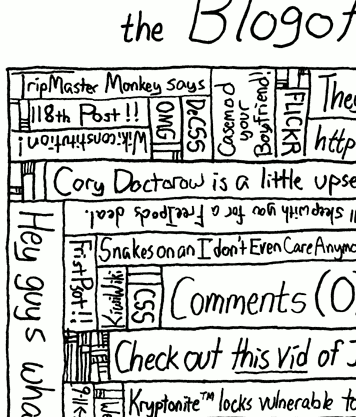 the Blogof
TripMaster Monkey says
118th Post!!
Wikiconstitution!
OMG
DeCSS
Casemod your Boyfriend!!
FLICKR
The
http
Cory Doctorow is a little upse
ll sleep with you for a FreeIpods deal.
Hey guys wha
FirstPost!!
Snakes on an I don't Even Care Anym
KiwiWiki
CSS
Comments (0
Check out this vid of
9/11
Kryptonite™ locks vulnerable to